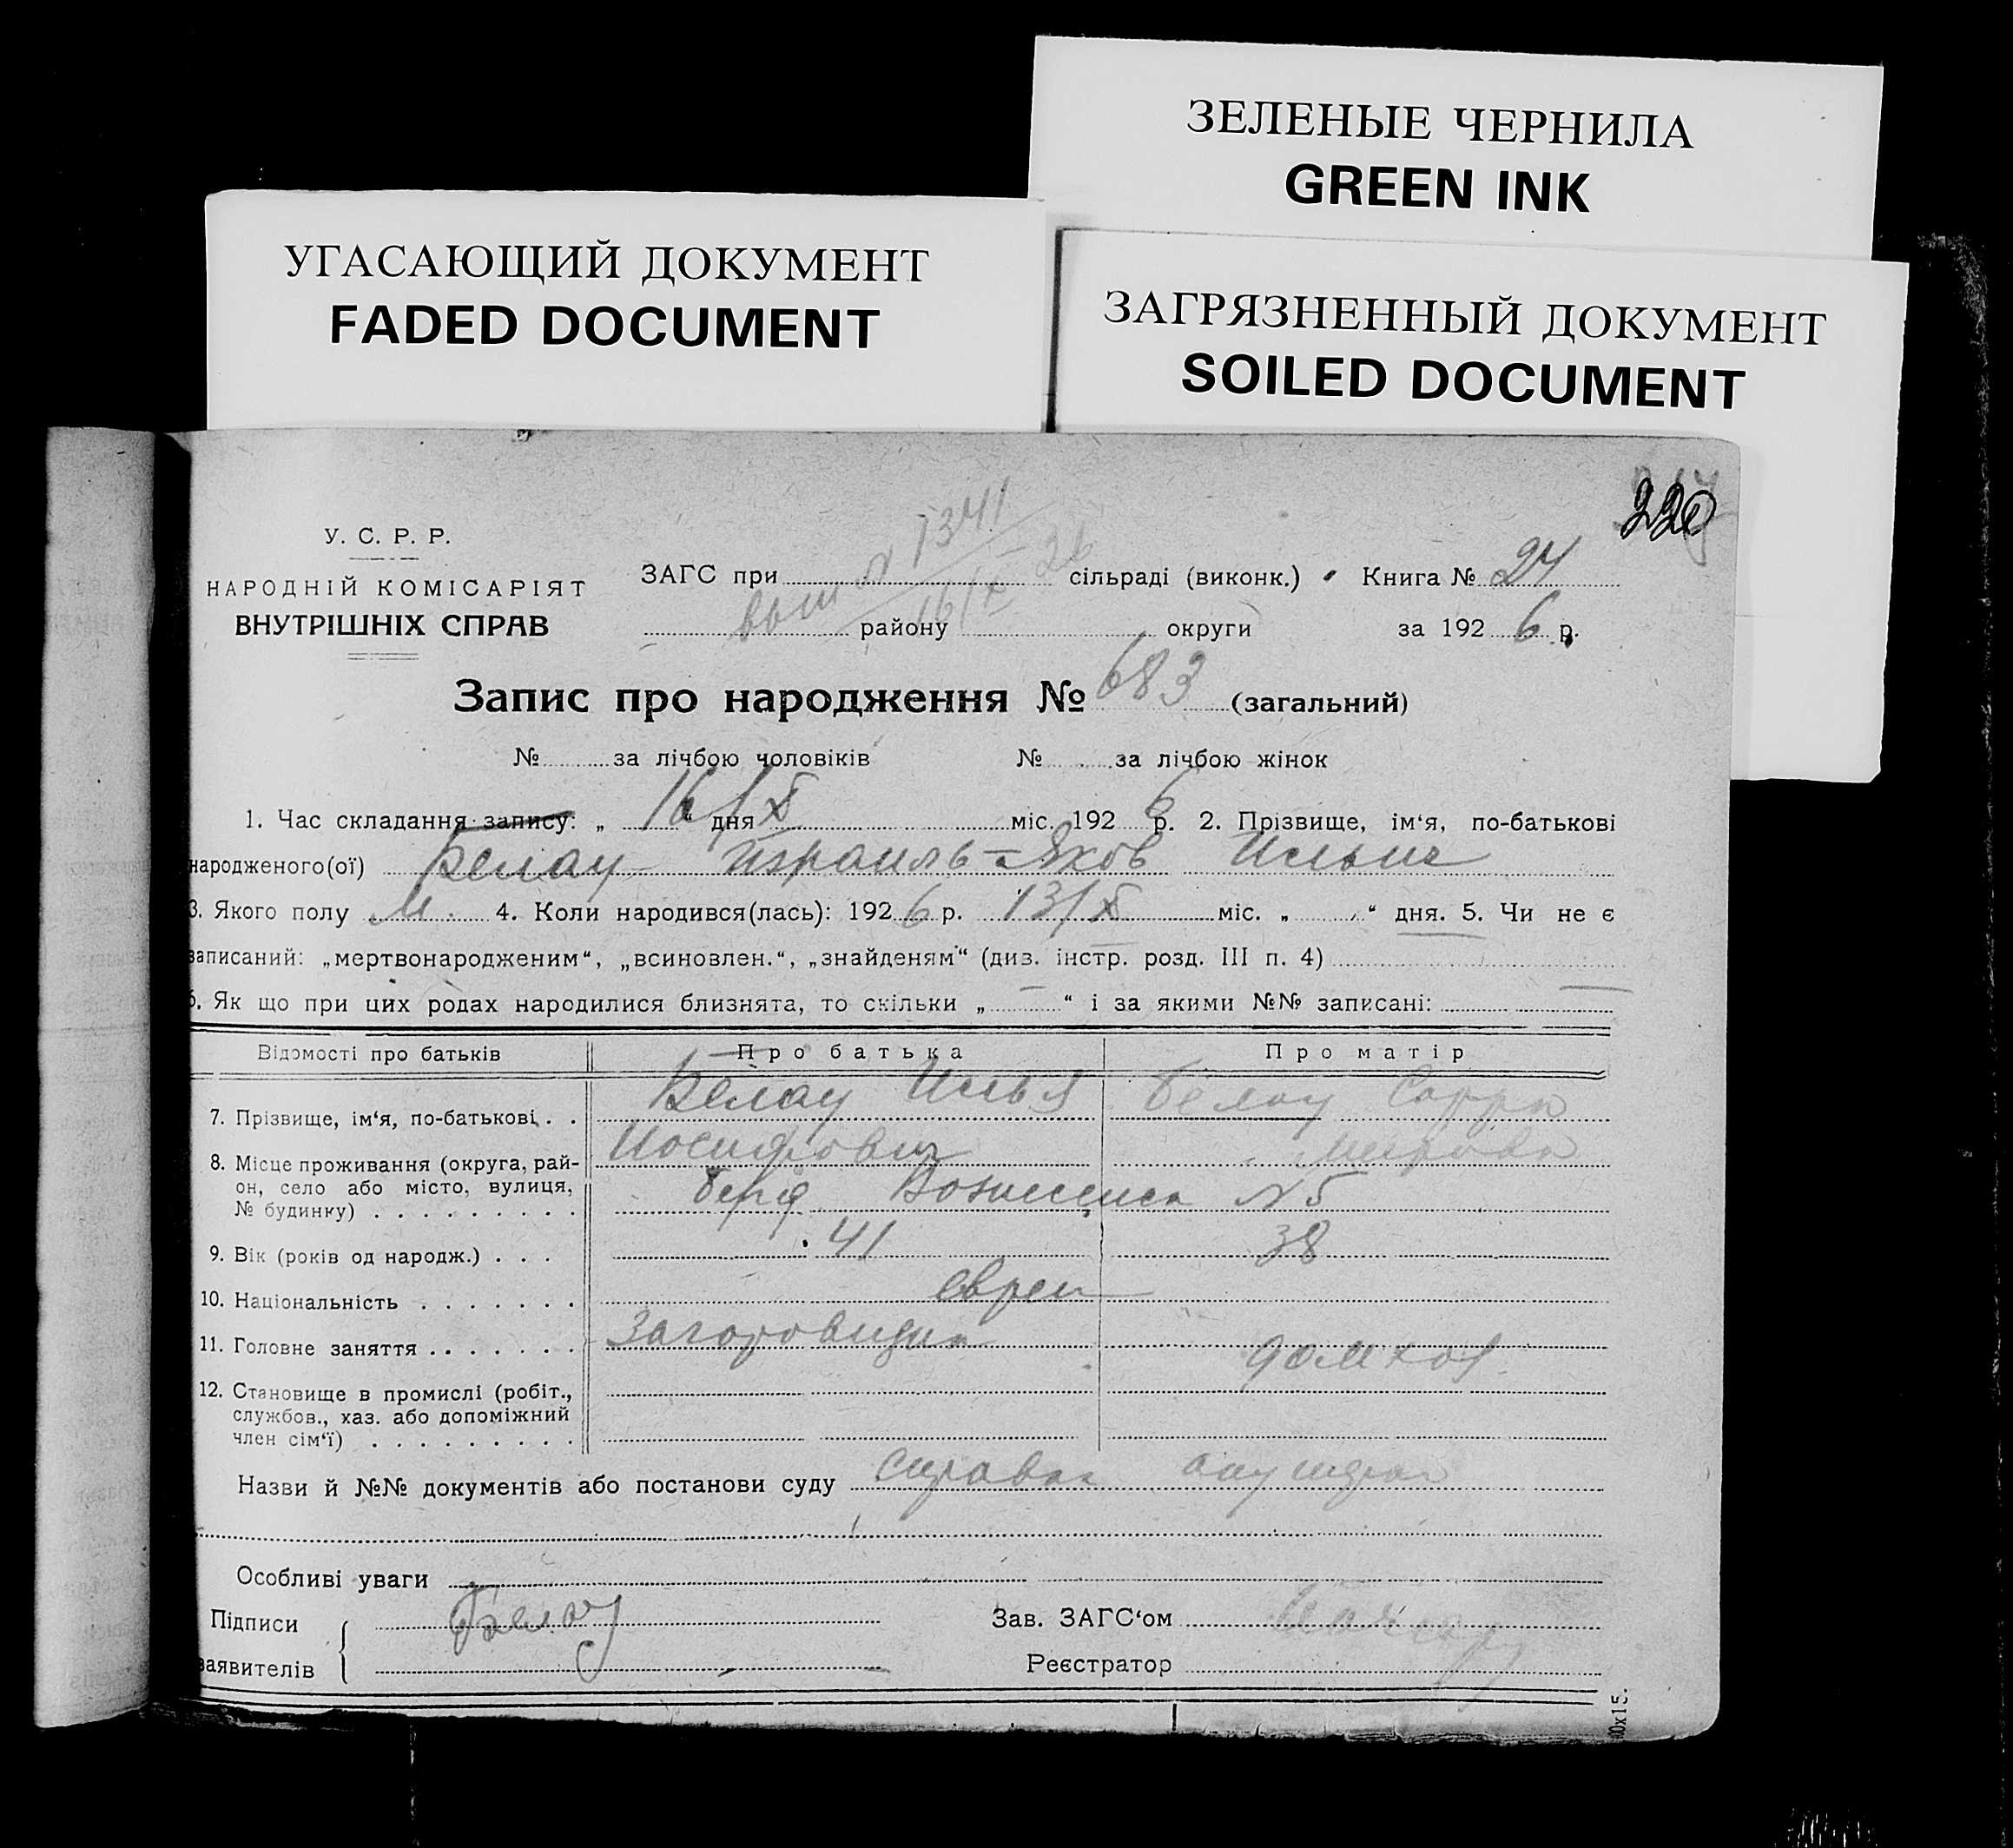 ЗЕЛЕНЫЕ ЧЕРНИЛА
GREEN INK
УГАСАЮЩИЙ ДОКУМЕНТ
FADED DOCUMENT
ЗАГРЯЗНЕННЫЙ ДОКУМЕНТ
SOILED DOCUMENT
220
У. С. Р. Р.
НАРОДНІЙ КОМІСАРІЯТ
ВНУТРІШНІХ СПРАВ
№ 1341
16/X - 26
ЗАГС при сільраді (виконк.) Книга № 24
району округи за 1926 р.
Запис про народження № 683 (загальний)
№ за лічбою чоловіків № за лічбою жінок
1. Час складання запису: „16/X“ дня міс. 1926 р. 2. Прізвище, ім‘я, по-батькові
народженого(ої) Белау Израиль-Яков Ильич
3. Якого полу М. 4. Коли народився(лась): 1926 р. 13/X міс. „ “ дня. 5. Чи не є
записаний: „мертвонародженим“, „всиновлен.“, „знайденям“ (див. інстр. розд. III п. 4)
6. Як що при цих родах народилися близнята, то скільки „ “ і за якими №№ записані:
Відомості про батьків Про батька Про матір
7. Прізвище, ім‘я, по-батькові . . Белау Илья Белау Сарра
Иосифович
8. Місце проживання (округа, рай-
он, село або місто, вулиця,
№ будинку) . . . . . . . . . №5
9. Вік (років од народж.) . . . 41 38
10. Національність . . . . . . . евреи
11. Головне заняття . . . . . . . домхоз.
12. Становище в промислі (робіт.,
службов., хаз. або допоміжний
член сім‘ї) . . . . . . . . .
Назви й №№ документів або постанови суду справка акушерки
Особливі уваги
Підписи Белау Зав. ЗАГС‘ом
заявителів Реєстратор
00х15.